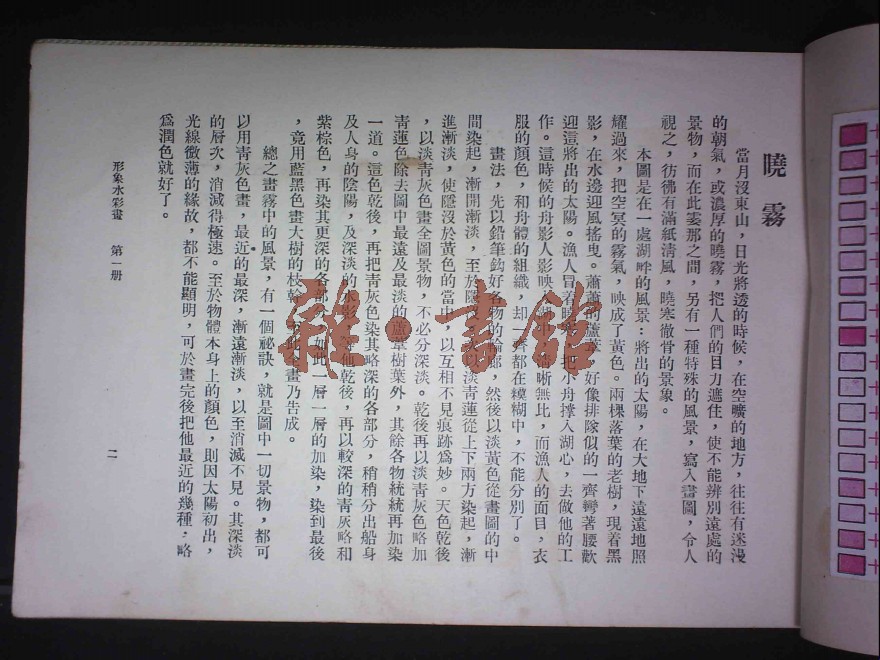 曉霧
當月沒東山，日光將透的時候，在空曠的地方，往往有迷漫
的朝氣，或濃厚的曉霧，把人們的目力遮住，使不能辨別遠處的
景物，而在此霎那之間，另有一種特殊的風景，寫入畫圖，令人
視之，彷彿有滿紙淸風，曉寒徹骨的景象。
本圖是在一處湖畔的風景：將出的太陽，在大地下遠遠地照
耀過來，把空冥的霧氣，映成了黃色。兩棵落葉的老樹，現着黑
影，在水邊迎風搖曳。蕭蕭的蘆葦，好像排隊似的一齊彎著腰歡
迎這將出的太陽。漁人冒着曉寒，把小舟撐入湖心，去做他的工
作。這時候的舟影人影映 淸晰無比，而漁人的面目，衣
服的顏色，和舟體的組織，却一齊都在糢糊中，不能分別了。
畫法，先以鉛筆鈎好各物的輪廓，然後以淡黃色從畫圖的中
間染起，漸開漸淡，至於隱 以淡靑蓮從上下兩方染起，漸
進漸淡，使隱沒於黃色的當中，以互相不見痕跡爲妙。天色乾後
，以淡靑灰色畫全圖景物，不必分深淡。乾後再以淡靑灰色略加
靑蓮色除去圖中最遠及最淡的蘆葦樹葉外，其餘各物統統再加染
一道。這色乾後，再把靑灰色染其略深的各部分，稍稍分出船身
及人身的陰陽，及深淡的水影，等他乾後，再以較深的靑灰略和
紫棕色，再染其更深的各部，如此一層一層的加染，染到最後
，竟用藍黑色畫大樹的枝幹，至此全畫乃告成。
總之畫霧中的風景，有一個祕訣，就是圖中一切景物，都可
以用靑灰色畫，最近的最深，漸遠漸淡，以至消滅不見。其深淡
的層次，消減得極速。至於物體本身上的顏色，則因太陽初出，
光線微薄的緣故，都不能顯明，可於畫完後把他最近的幾種，略
爲潤色就好了。
形象水彩畫　第一册
二
雅·書館